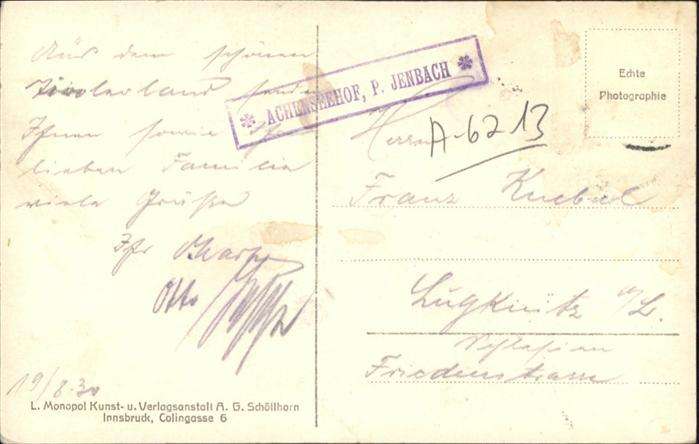 Aus dem schönen
Tirolerland senden
Ihnen sowie
lieben Familie
viele Grüße
Ihr
Otto
19/8.30
L. Monopol Kunst- u. Verlagsanstalt A. G. Schöllhorn
Innsbruck, Colingasse 6
* ACHENSEEHOF, P. JENBACH *
Echte
Photographie
Herrn
A-6213
Franz Knebel
Lugknitz o/L.
Schlesien
Friedenstrasse